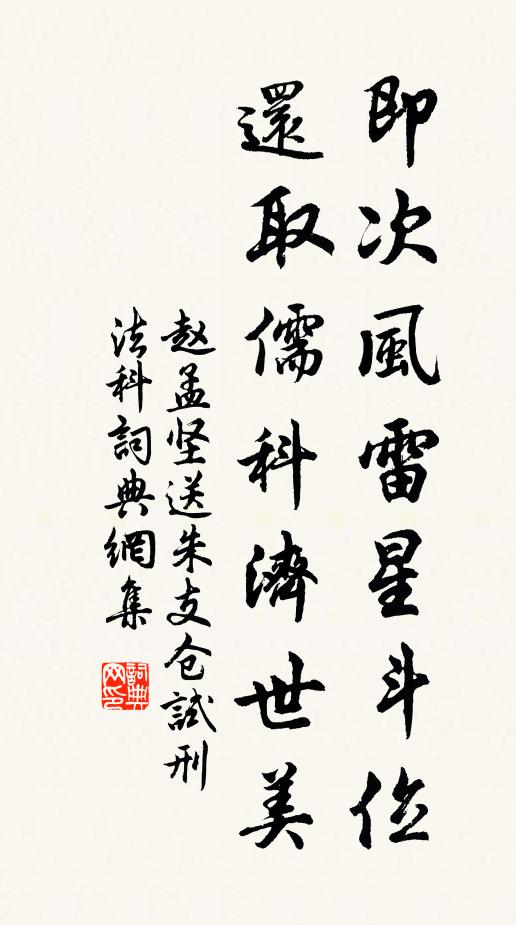 即次風雷星斗位
還取儒科濟世美
赵孟坚送朱支仓試刑
法科詞典網集
詞典
网印